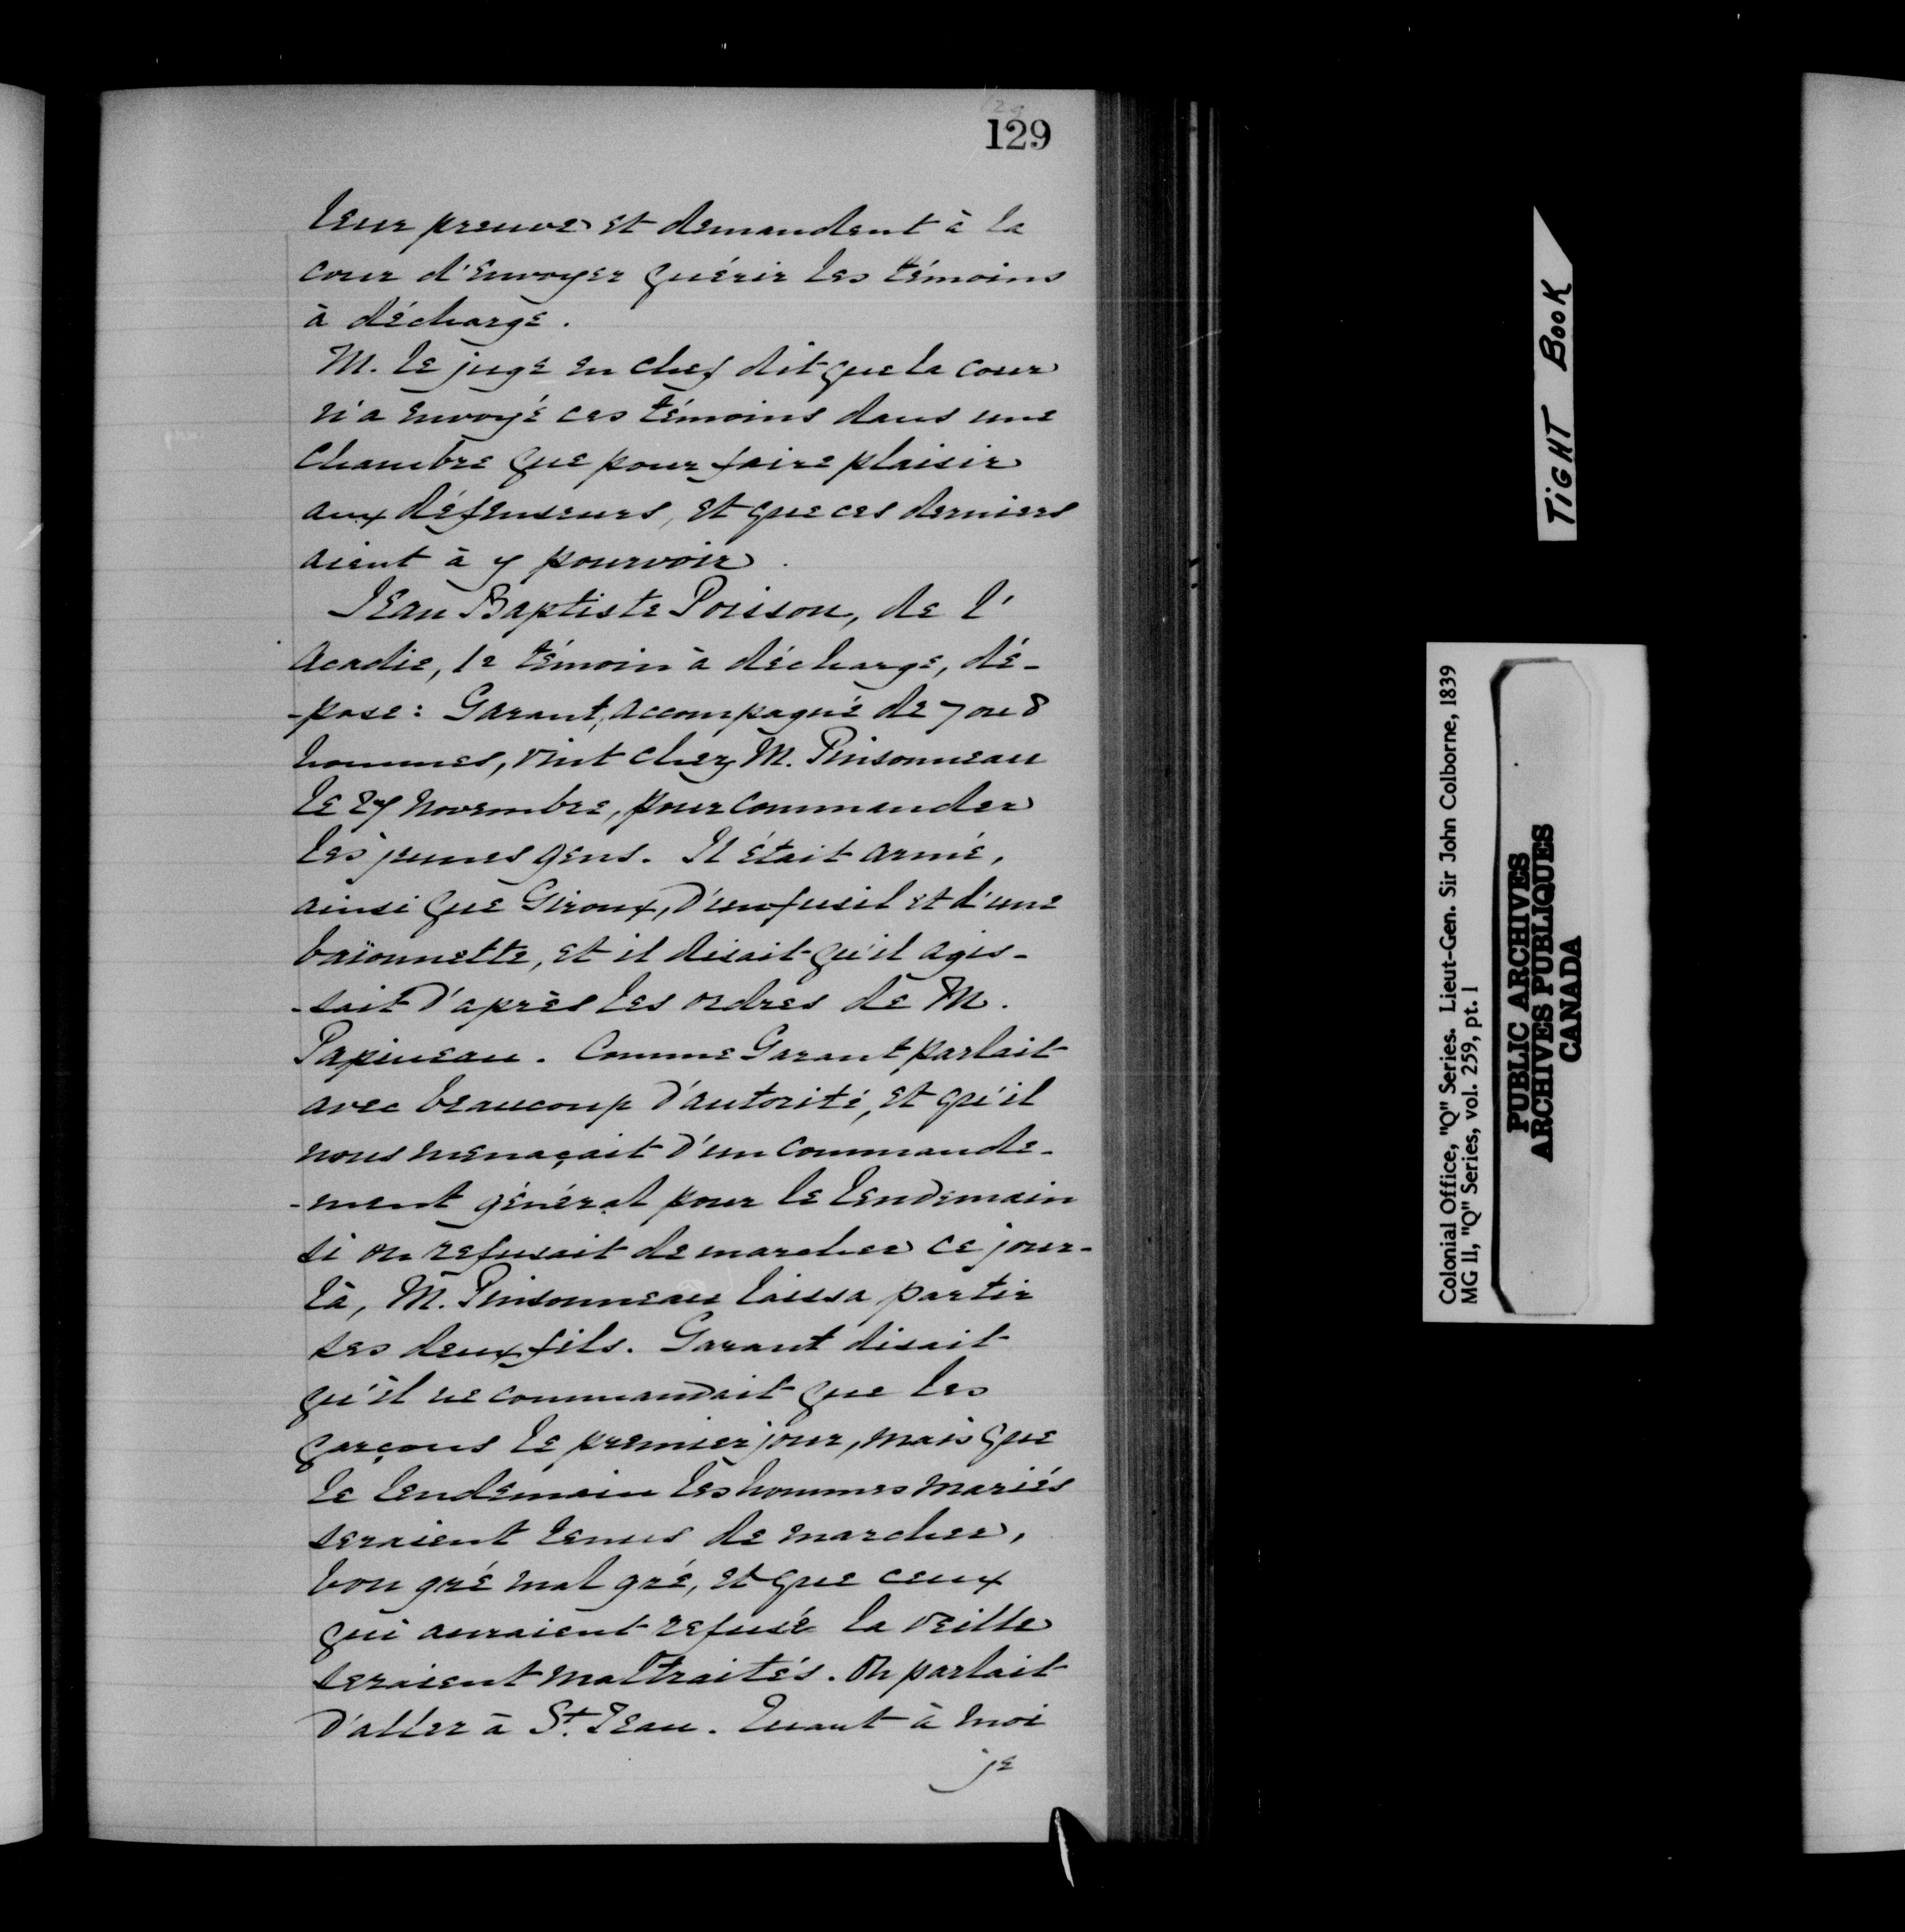 129
129
leur preuve et demandent à la
cour d'envoyer quérir les témoins
à décharge.
M. le juge en chef dit que la cour
n'a envoyé ces témoins dans une
chambre que pour faire plaisir
aux défenseurs, et que ces derniers
aient à y pourvoir.
Jean Baptiste Poisson, de l'
Acadie, 1e témoin à décharge, dé-
-pose: Garant, accompagné de 7 ou 8
hommes, vint chez M. Pinsonneau
le 27 Novembre, pour commander
les jeunes gens. Il était armé,
ainsi que Giroux, d'un fusil et d'une
baïonnette, et il disait qu'il agis-
-sait d'après les ordres de M.
Papineau. Comme Garant parlait
avec beaucoup d'autorité, et qu'il
nous menaçait d'un commande-
-ment général pour le lendemain
si on refusait de marcher ce jour-
là, M. Pinsonneau laissa partir
ses deux fils. Garant disait
qu'il ne commandait que les
garçons le premier jour, mais que
le lendemain les hommes mariés
seraient tenus de marcher,
bon gré mal gré, et que ceux
qui auraient refusé la veille
seraient maltraités. On parlait
d'aller à St. Jean. Quant à moi
je
TIGHT BOOK
Colonial Office, "Q" Series. Lieut-Gen. Sir John Colborne, 1839
MG 11, "Q" Series, vol. 259, pt. 1
PUBLIC ARCHIVES
ARCHIVES PUBLIQUES
CANADA